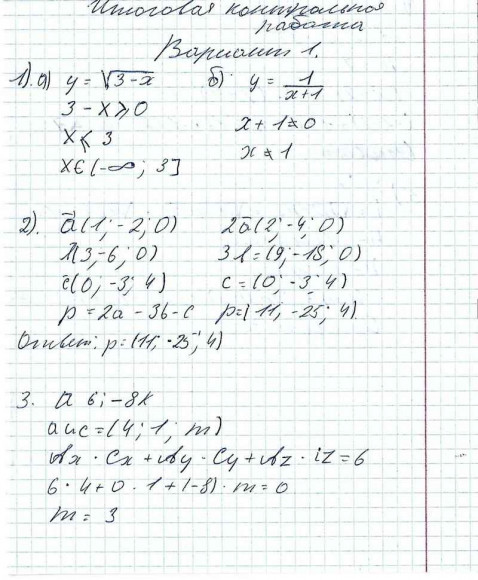 Итоговая контрольная
работа
Вариант 1.
1). а) y = √3-x б). y = 1/x+1
3 - x ⩾ 0 x + 1 ≠ 0
x ⩽ 3 x ≠ 1
x ∈ (-∞; 3]
2). ā(1; -2; 0) 2ā(2; -4; 0)
(3; -6; 0) 3b = (9; -18; 0)
c̄(0; -3; 4) c = (0; -3; 4)
p = 2a - 3b - c p = (11; -25; 4)
Ответ: p = (11; -25; 4)
3. a 6i - 8k
a и c = (4; 1; m)
Ax · Cx + Ay · Cy + Az · iz = 6
6 · 4 + 0 · 1 + (-8) · m = 0
m = 3